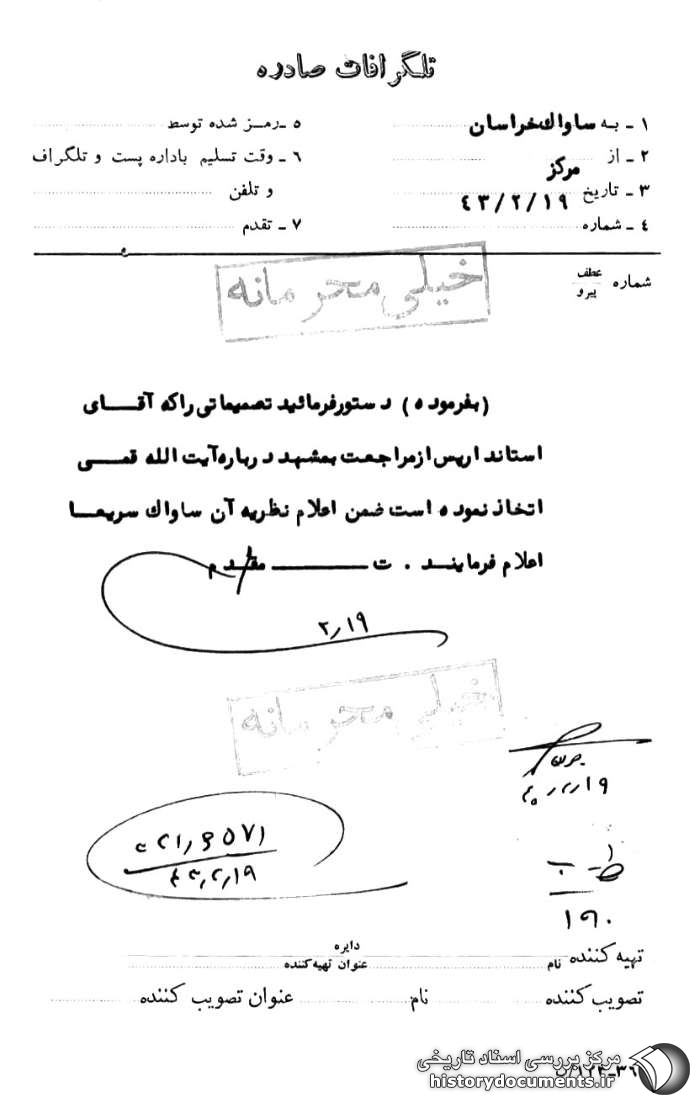 تلگرافات صادره
۱ ـ به ساواک خراسان
۲ ـ از مرکز
۳ ـ تاریخ ۴۳/۲/۱۹
۴ ـ شماره
۵ ـ رمـز شده توسط
۶ ـ وقت تسلیم باداره پست و تلگراف
و تلفن
۷ ـ تقدم
شماره عطف
پیرو
خیلی محرمانه
(بفرموده) دستورفرمائید تصمیماتی راکه آقــای
استانداریس ازمراجعت بمشهد درباره آیت الله قمـی
اتخاذ نموده است ضمن اعلام نظریه آن ساواک سریعـا
اعلام فرمایند . ت ــــــ مقدم
۲/۱۹
خیلی محرمانه
۱۹۰
تهیه کننده نام
دایره
عنوان تهیه کننده
تصویب کننده نام عنوان تصویب کننده
مرکز بررسی اسناد تاریخی
historydocuments.ir